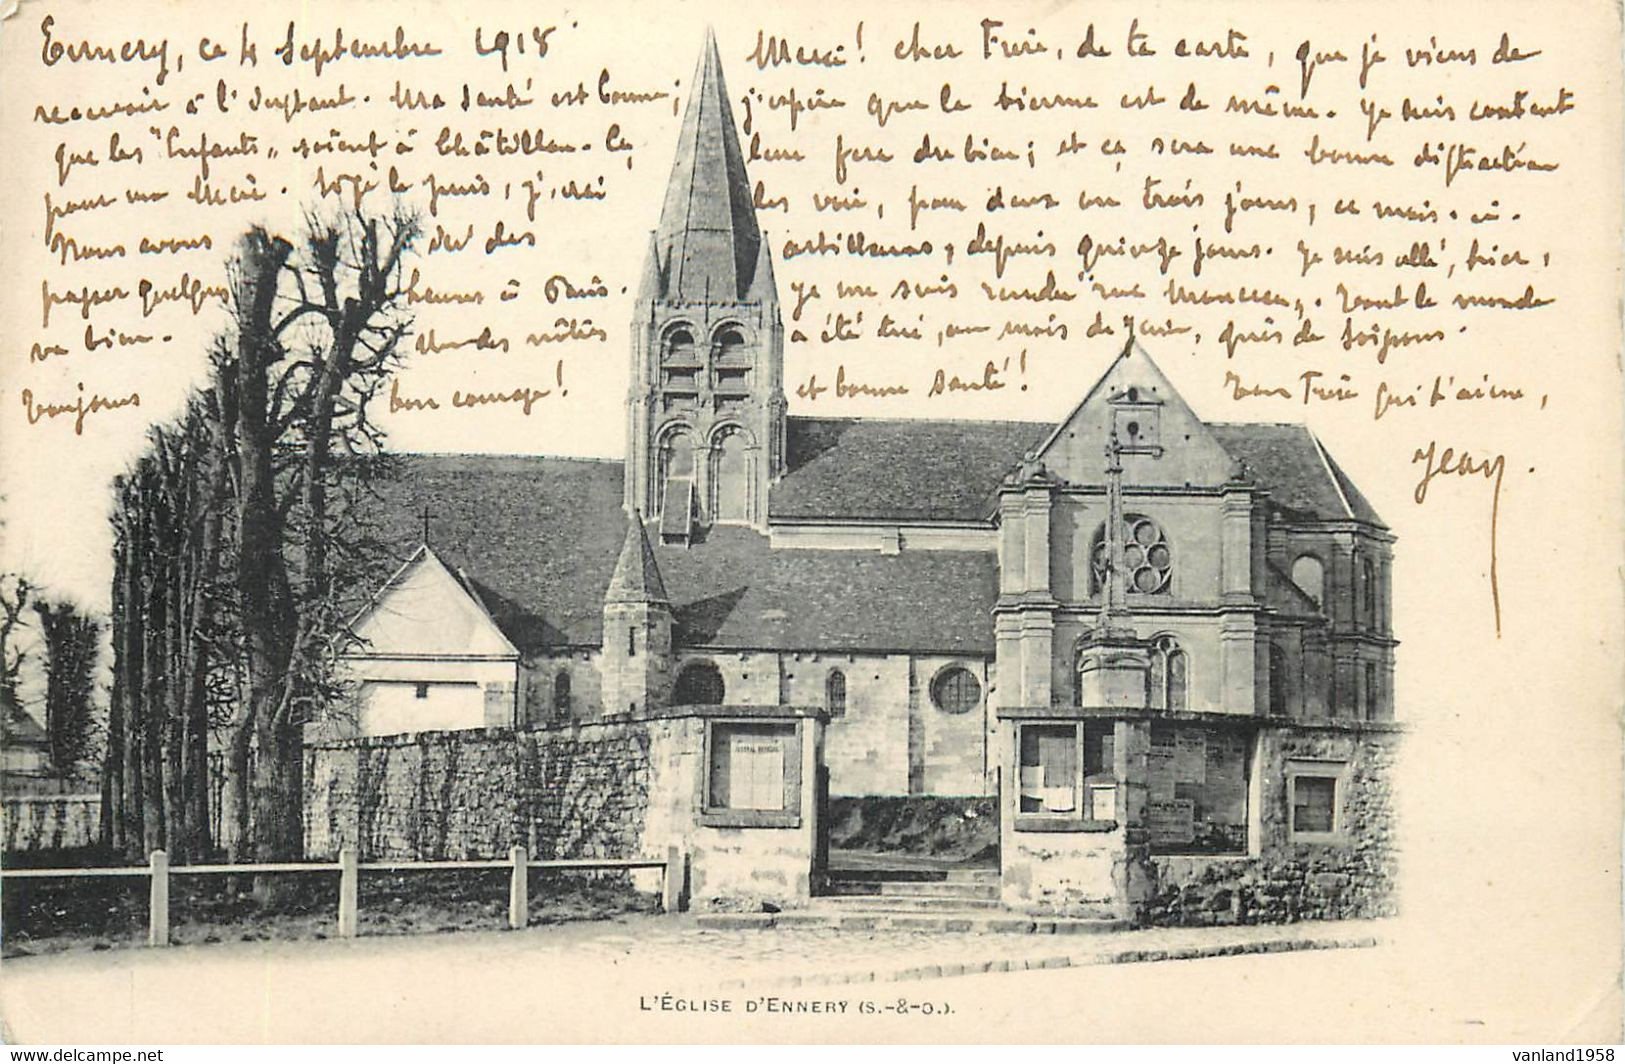 Ennery, ce 4 Septembre 1918 Merci ! cher Frère, de ta carte, que je viens de
recevoir à l'instant. Ma santé est bonne ; j'espère que la tienne est de même. Je suis content
que les "Enfants" soient à Châtillon. Ça leur fera du bien ; et ça sera une bonne distraction
pour ma Mère. Si je le puis, j'irai les voir, pour deux ou trois jours, ce mois-ci.
Nous avons ici des artilleurs, depuis quinze jours. Je suis allé, hier,
passer quelques heures à Paris. Je me suis rendu "rue Monceau". Tout le monde
va bien. Un des nôtres a été tué, au mois de Juin, près de Soissons.
Toujours bon courage ! et bonne santé ! Ton Frère qui t'aime,
Jean.
L'ÉGLISE D'ENNERY (S.-&-O.).
vanland1958 @ www.delcampe.net vanland1958